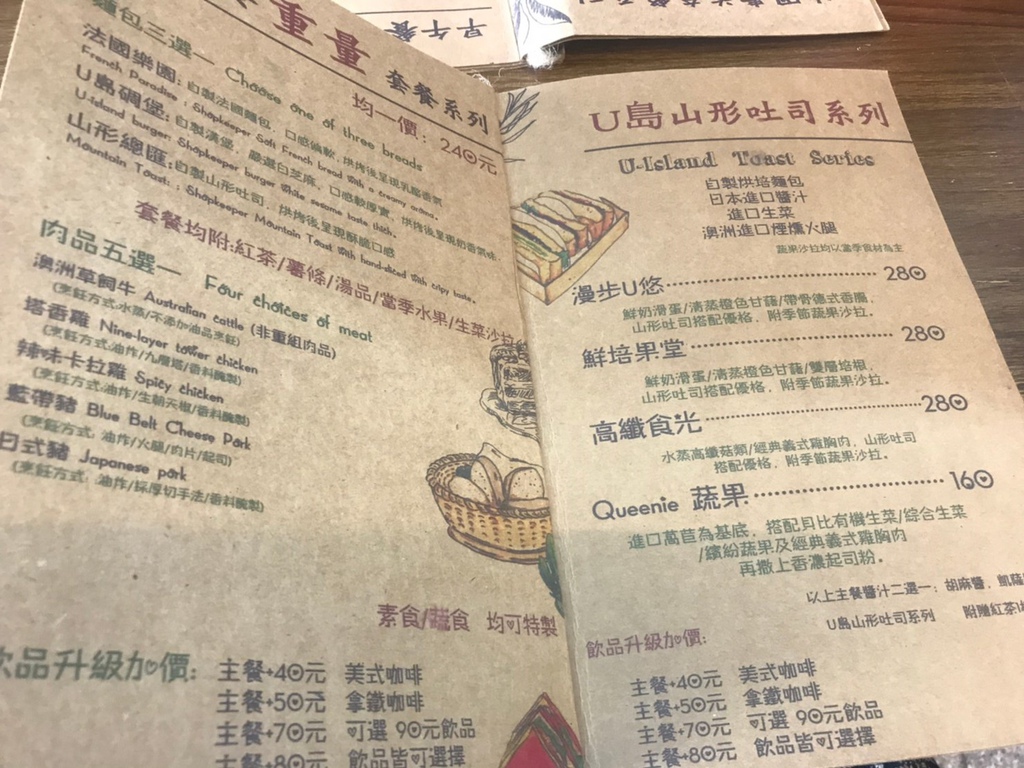 重量 套餐系列
均一價：240元
麵包三選一 Choose one of three breads
法國樂園：自製法國麵包，口感鬆軟，烘烤後呈現乳酪香氣
French Paradise : Shopkeeper Soft French bread with a creamy aroma.
U島碉堡：自製漢堡，嚴選白芝麻，口感軟厚實，烘烤後呈現奶香氣味
U-Island burger: Shopkeeper burger White sesame taste thick,
山形總匯：自製山形吐司，烘烤後呈現酥脆口感
Mountain Toast: : Shopkeeper Mountain Toast With hand-sliced with crispy taste.
套餐均附:紅茶/薯條/湯品/當季水果/生菜沙拉
肉品五選一 Four choices of meat
澳洲草飼牛 Australian cattle (非重組肉品)
(烹飪方式:水蒸/不添加油品烹飪)
塔香雞 Nine-layer tower chicken
(烹飪方式:油炸/九層塔/香料醃製)
辣味卡拉雞 Spicy chicken
(烹飪方式:油炸/生朝天椒/香料醃製)
藍帶豬 Blue Belt Cheese Pork
(烹飪方式: 油炸/火腿/肉片/起司)
日式豬 Japanese pork
(烹飪方式: 油炸/採厚切手法/香料醃製)
素食/蔬食 均可特製
飲品升級加價:
主餐+40元 美式咖啡
主餐+50元 拿鐵咖啡
主餐+70元 可選 90元飲品
主餐+80元 飲品皆可選擇
早午餐
U島山形吐司系列
U-Island Toast Series
自製烘培麵包
日本進口醬汁
進口生菜
澳洲進口煙燻火腿
蔬果沙拉均以當季食材為主
漫步U悠 280
鮮奶滑蛋/清蒸橙色甘藷/帶骨德式香腸，
山形吐司搭配優格，附季節蔬果沙拉。
鮮培果堂 280
鮮奶滑蛋/清蒸橙色甘藷/雙層培根，
山形吐司搭配優格，附季節蔬果沙拉。
高纖食光 280
水蒸高纖菇類/經典義式雞胸肉，山形吐司
搭配優格，附季節蔬果沙拉。
Queenie 蔬果 160
進口萵苣為基底，搭配貝比有機生菜/綜合生菜
/繽紛蔬果及經典義式雞胸肉
再撒上香濃起司粉。
以上主餐醬汁二選一：胡麻醬，凱薩
U島山形吐司系列 附贈紅茶
飲品升級加價:
主餐+40元 美式咖啡
主餐+50元 拿鐵咖啡
主餐+70元 可選 90元飲品
主餐+80元 飲品皆可選擇